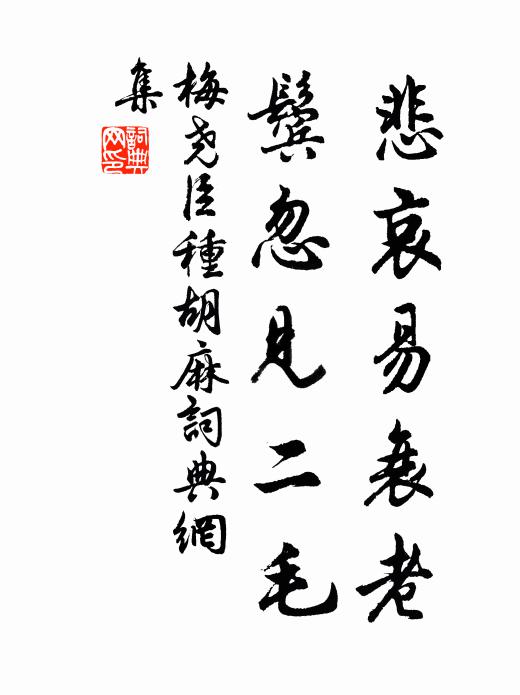 悲哀易衰老
鬓忽見二毛
梅尧臣種胡麻詞典網
集
詞典
网印